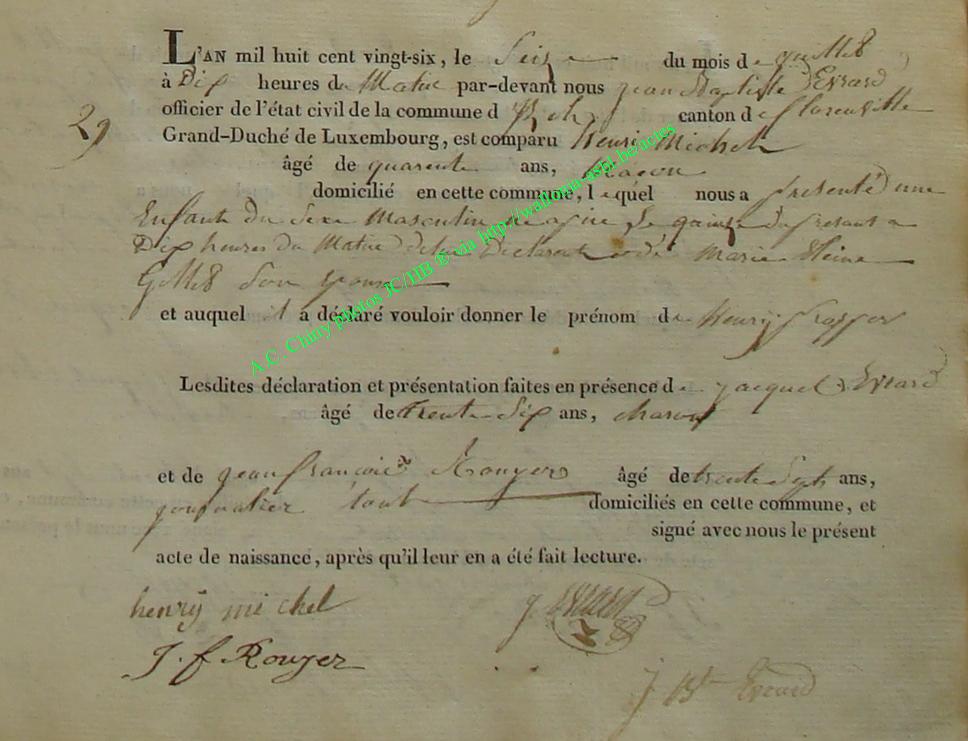 L'AN mil huit cent vingt-six, le Seize du mois de
à Dix heures du Matin par-devant nous jean Baptiste Evrard
officier de l'état civil de la commune d canton de florenville
29
Grand-Duché de Luxembourg, est comparu Henri Michel
âgé de quarente ans,
domicilié en cette commune, lequel nous a presenté une
Enfant du Sexe Masculin
Dix heures du Matin Declarent Marie
son
et auquel il a déclaré vouloir donner le prénom de Henry
Lesdites déclaration et présentation faites en présence de jacques Evrard
âgé de trente Six ans, charon
et de jean françoie Rouyer âgé de trente Sept ans,
tout domiciliés en cette commune, et
signé avec nous le présent
acte de naissance, après qu'il leur en a été fait lecture.
henrÿ michel j Evrard
J. f Rouyer
J Bte Evrard
A.C. Chiny photos JC/HB ® via http://wallonia-asbl.be/actes